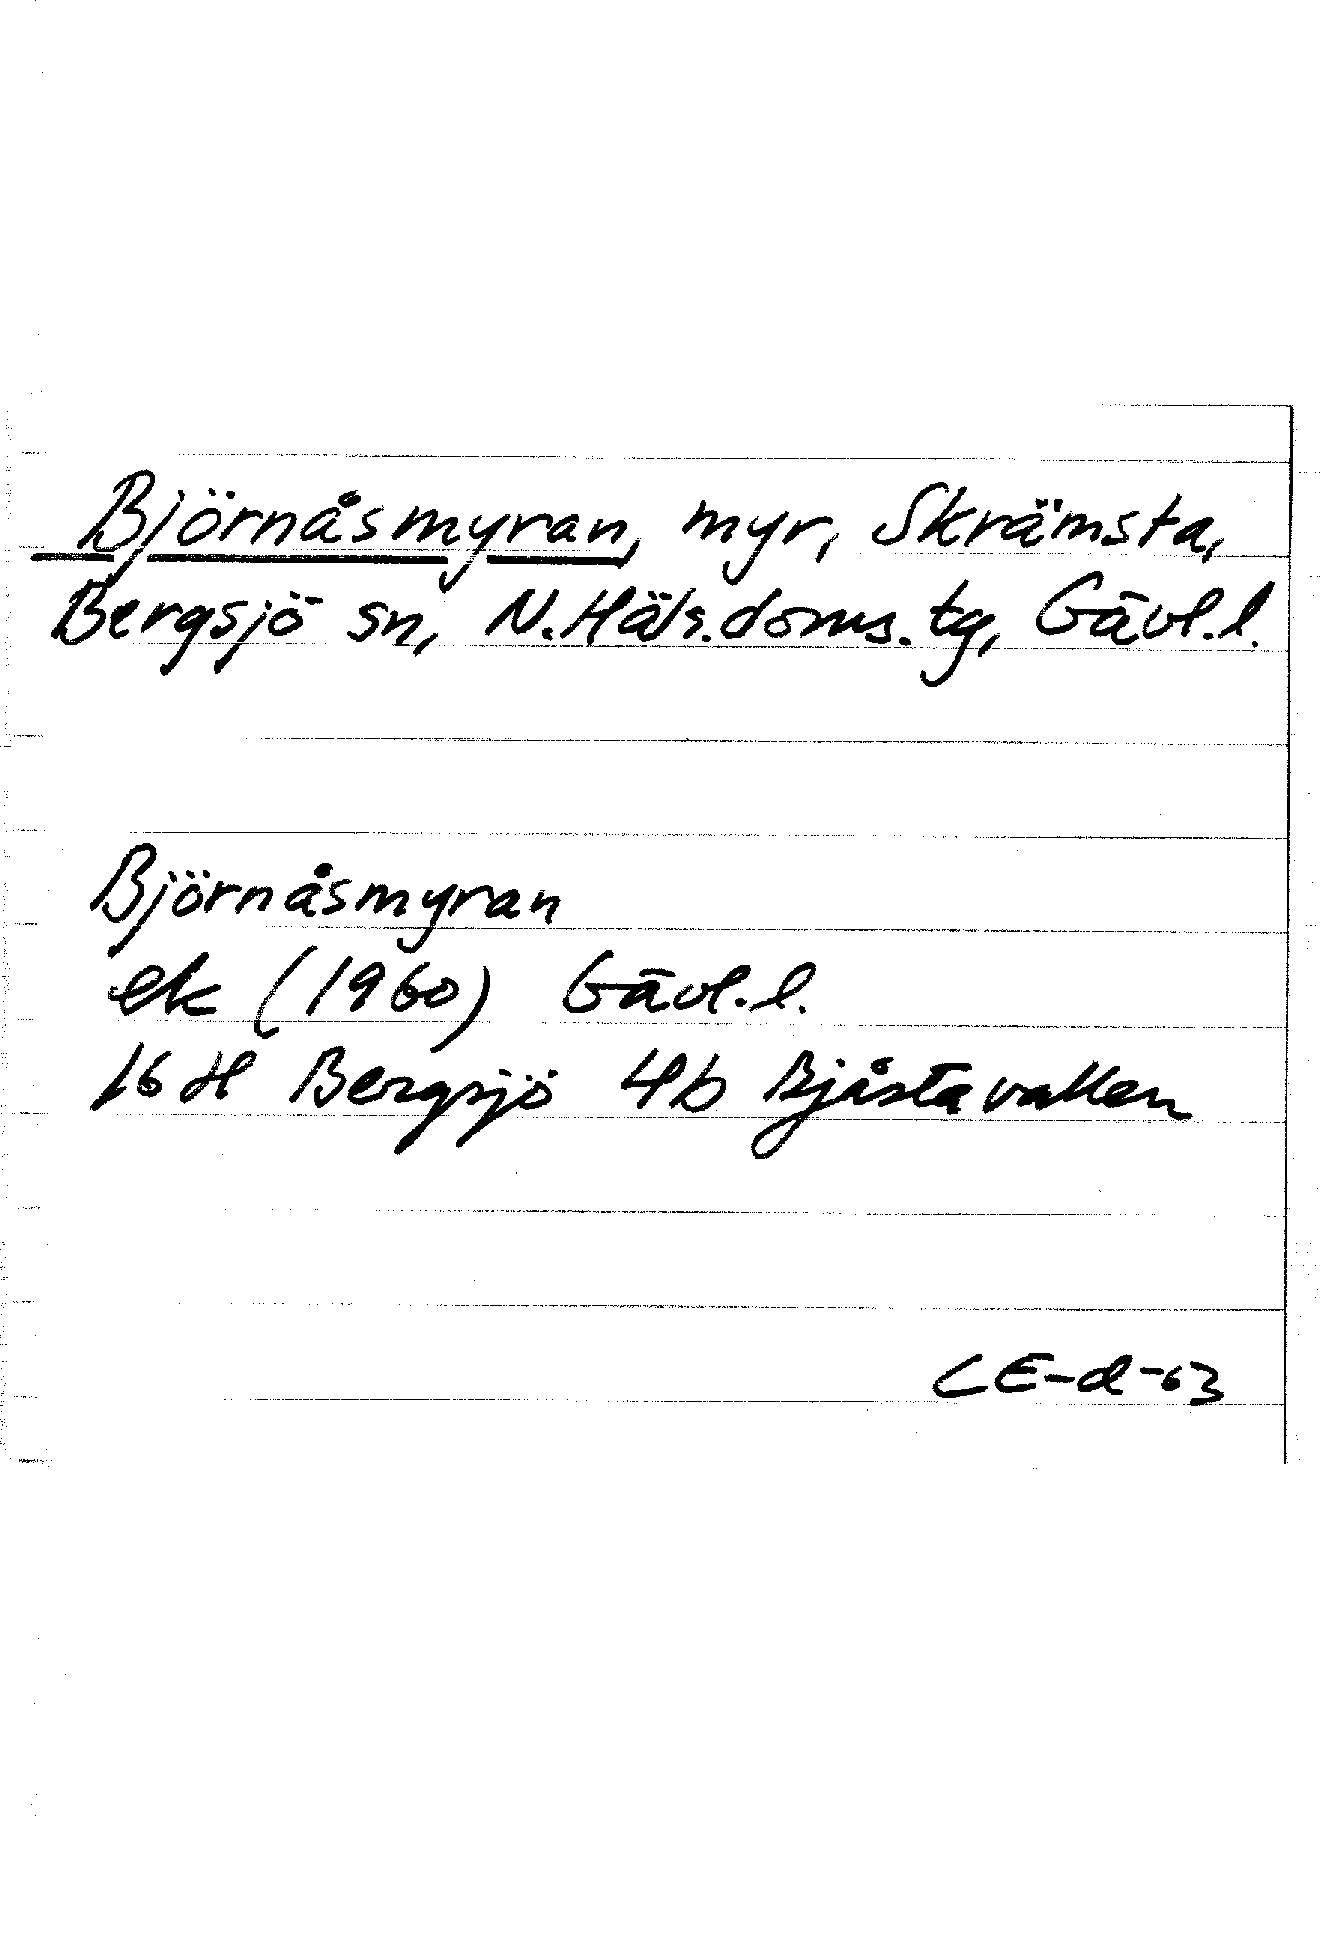 Björnåsmyran, myr, Skrämsta,
Bergsjö sn, N.Häls.doms.tg, Gävl.l.
Björnåsmyran
ek (1960) Gävl.l.
16 H Bergsjö 4b Bjåstavallen
CE-d-63